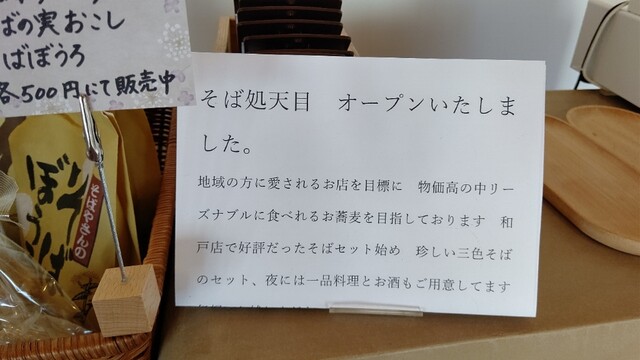 ばの実おこし
ばぼうろ
各500円にて販売中
そばやさんの
ぼうろ
そば処天目　オープンいたしま
した。
地域の方に愛されるお店を目標に　物価高の中リー
ズナブルに食べれるお蕎麦を目指しております　和
戸店で好評だったそばセット始め　珍しい三色そば
のセット、夜には一品料理とお酒もご用意してます